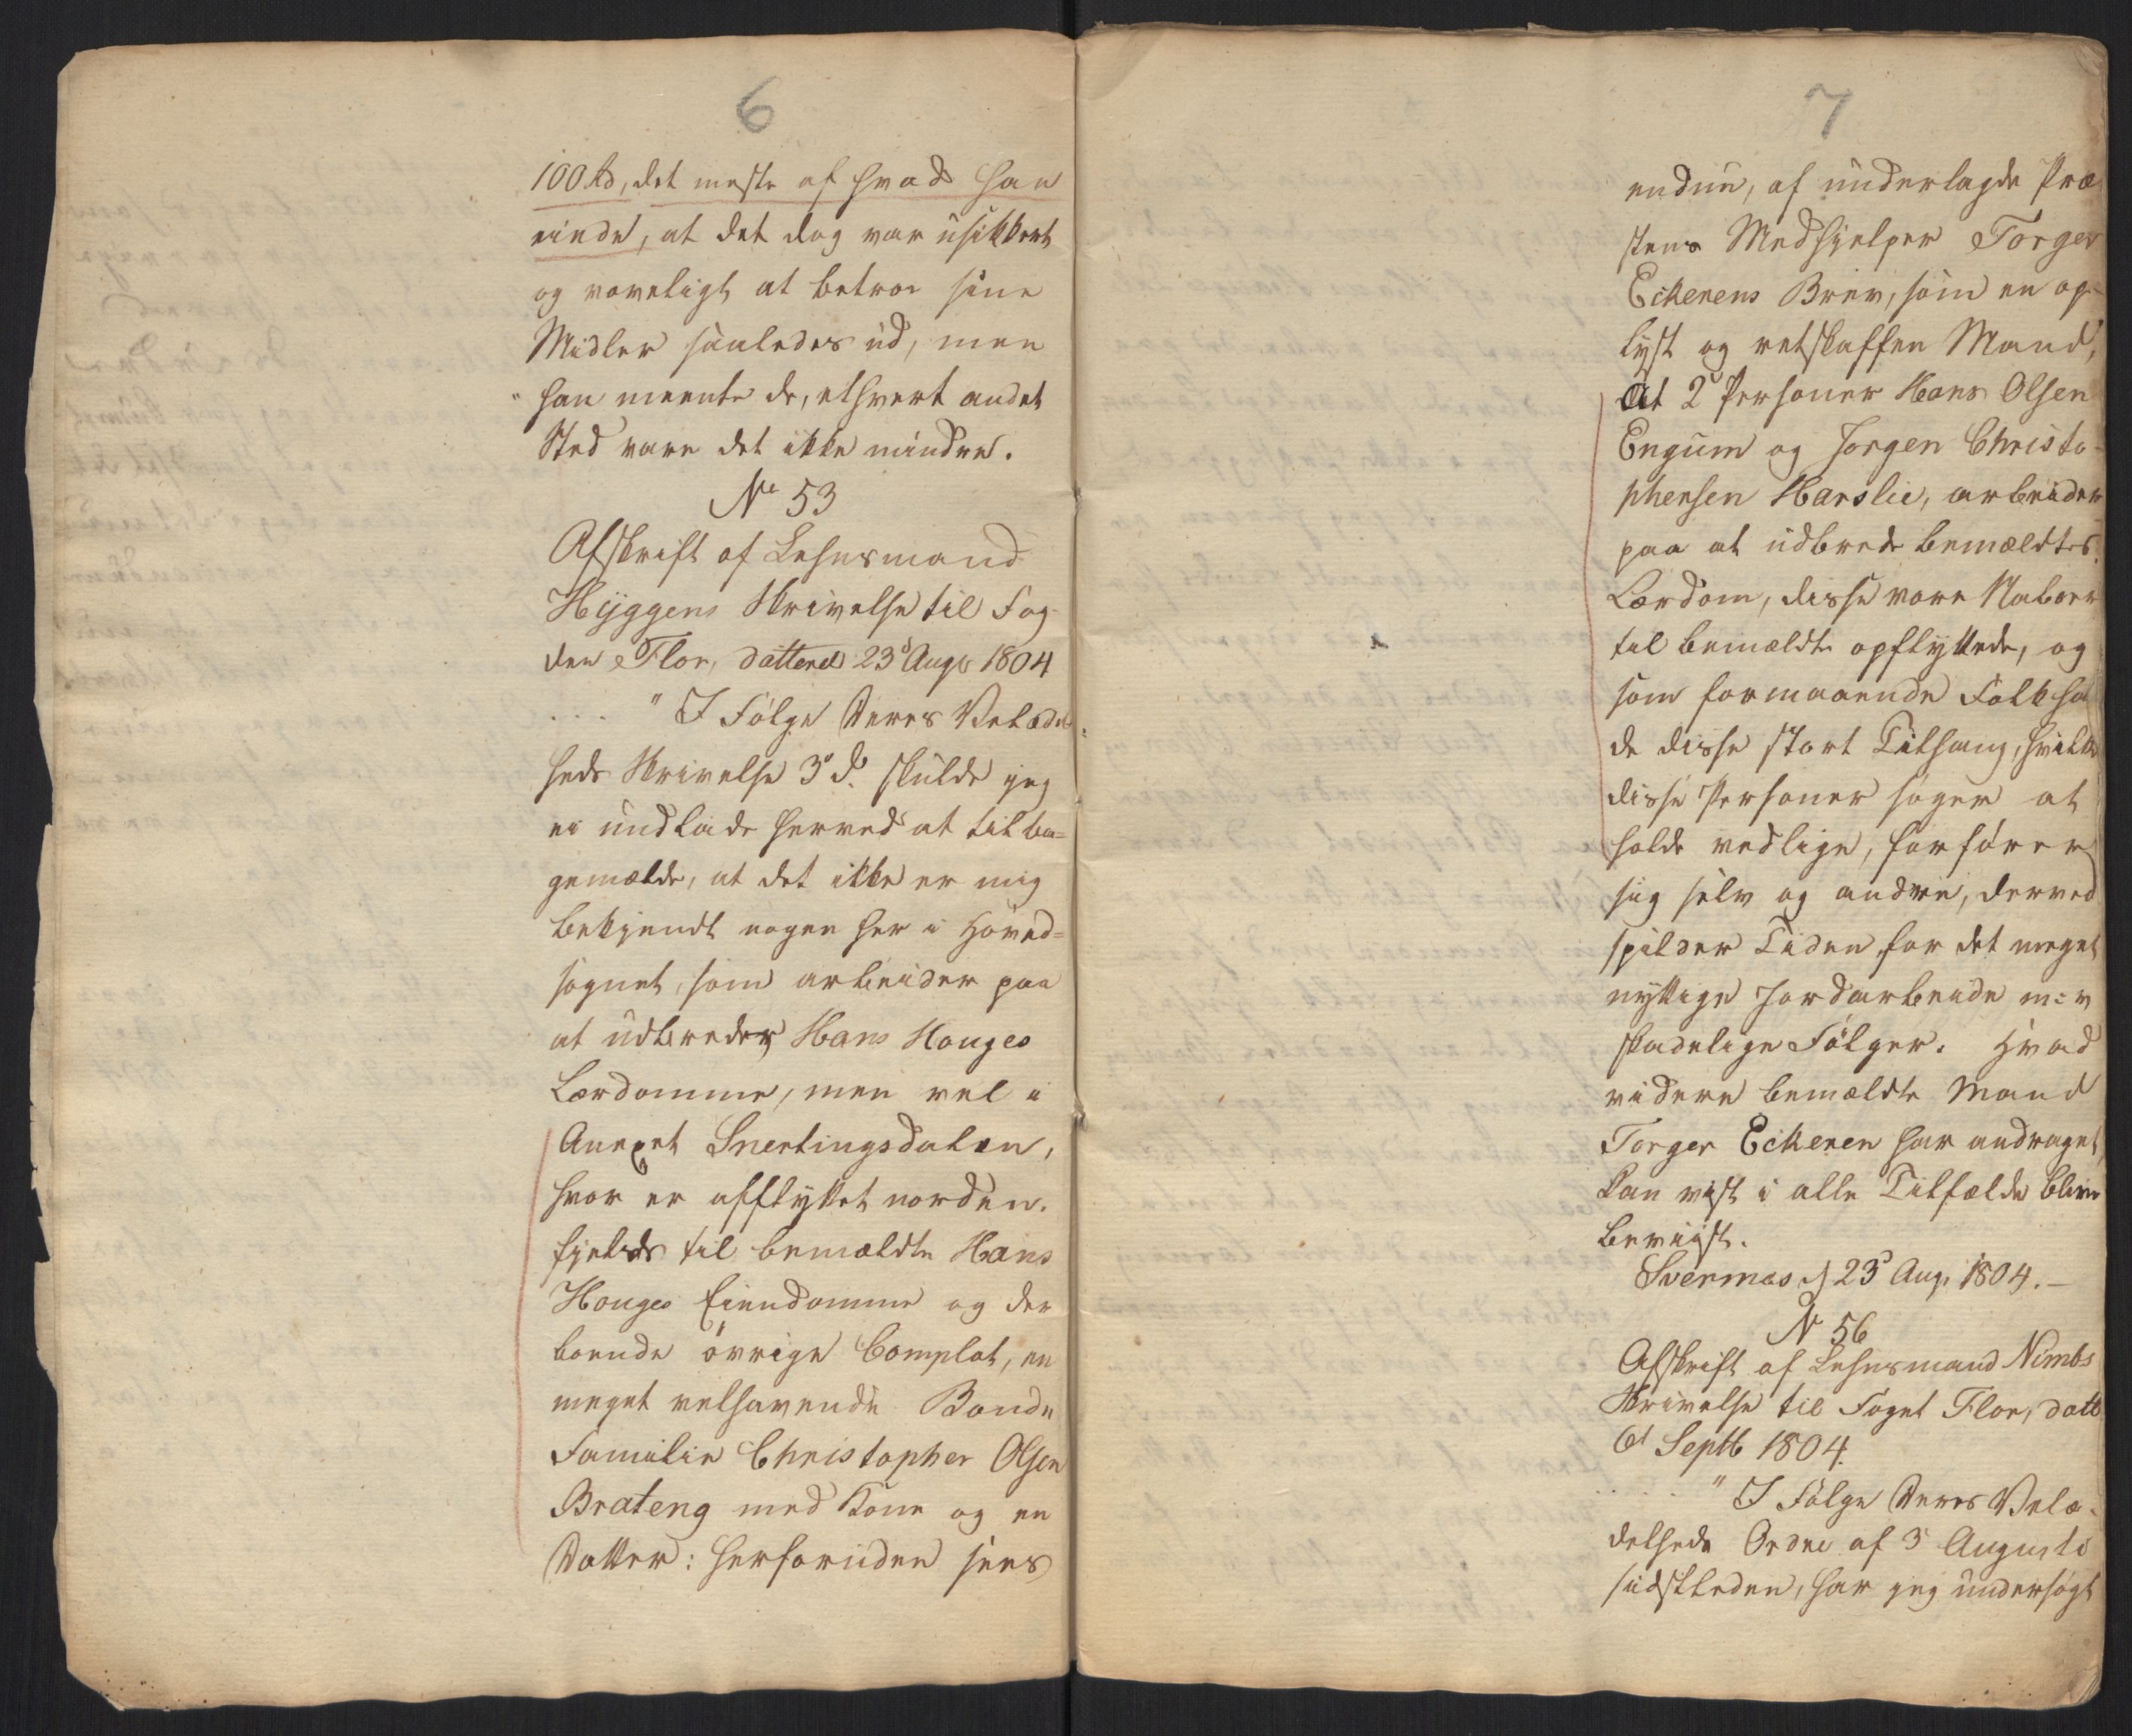 6
100 Rd, det meste af hvad han
eiede, at det dog var usikkert
og voveligt at betroe sine
Midler saaledes ud, men
han meente de, ethvert andet
Sted vare det ikke mindre.
No 53
Afskrift af Lehnsmand
Hyggens Skrivelse til Fog-
den Flor, datteret 23d Augs 1804
. . . " I Følge Deres Velædel-
heds Skrivelse 3d d. skulde jeg
ei undlade herved at tilba=
gemælde, at det ikke er mig
bekjendt nogen her i Hoved=
sognet, som arbeider paa
at udbreder Hans Houges
Lærdomme, men vel i
Annexet Snertingsdalen,
hvor er afflyttet norden-
fjelds til bemældte Hans
Houges Eiendomme og der
boende øvrige Complot, en
meget velhavende Bonde
Familie Christopher Olsen
Brateng med Kone og en
Datter: herforuden sees
7
endnu, af underlagde Præ
stens Medhjelper Torger
Eckerens Brev, som en op-
lyst og retskaffen Mand,
At 2de Personer Hans Olsen
Engum og Jorgen Christo-
phersen Harslie, arbeider
paa at udbrede bemældtes
Lærdom, disse vare Naboer
til bemældte opflyttede, og
som formaaende Folk ha
de disse stort Tilhang, hvilke
disse Personer søger at
holde vedlige, forfører
sig selv og andre, derved
spilder Tiden for det meget
nyttige Jordarbeide m: v
skadelige Følger. Hvad
videre bemældte Mand
Torger Eckeren har andraget,
kan vist i alle Tilfælde blive
beviist.
Svermoes d 23d Aug. 1804.—
No 56
Afskrift af Lehnsmand Nimbs
Skrivelse til Foget Flor, datt
6t Septb 1804.
. . . " I Følge Deres Velæ-
delheds Ordre af 3 Augusti
sidstleden, har jeg undersøgt